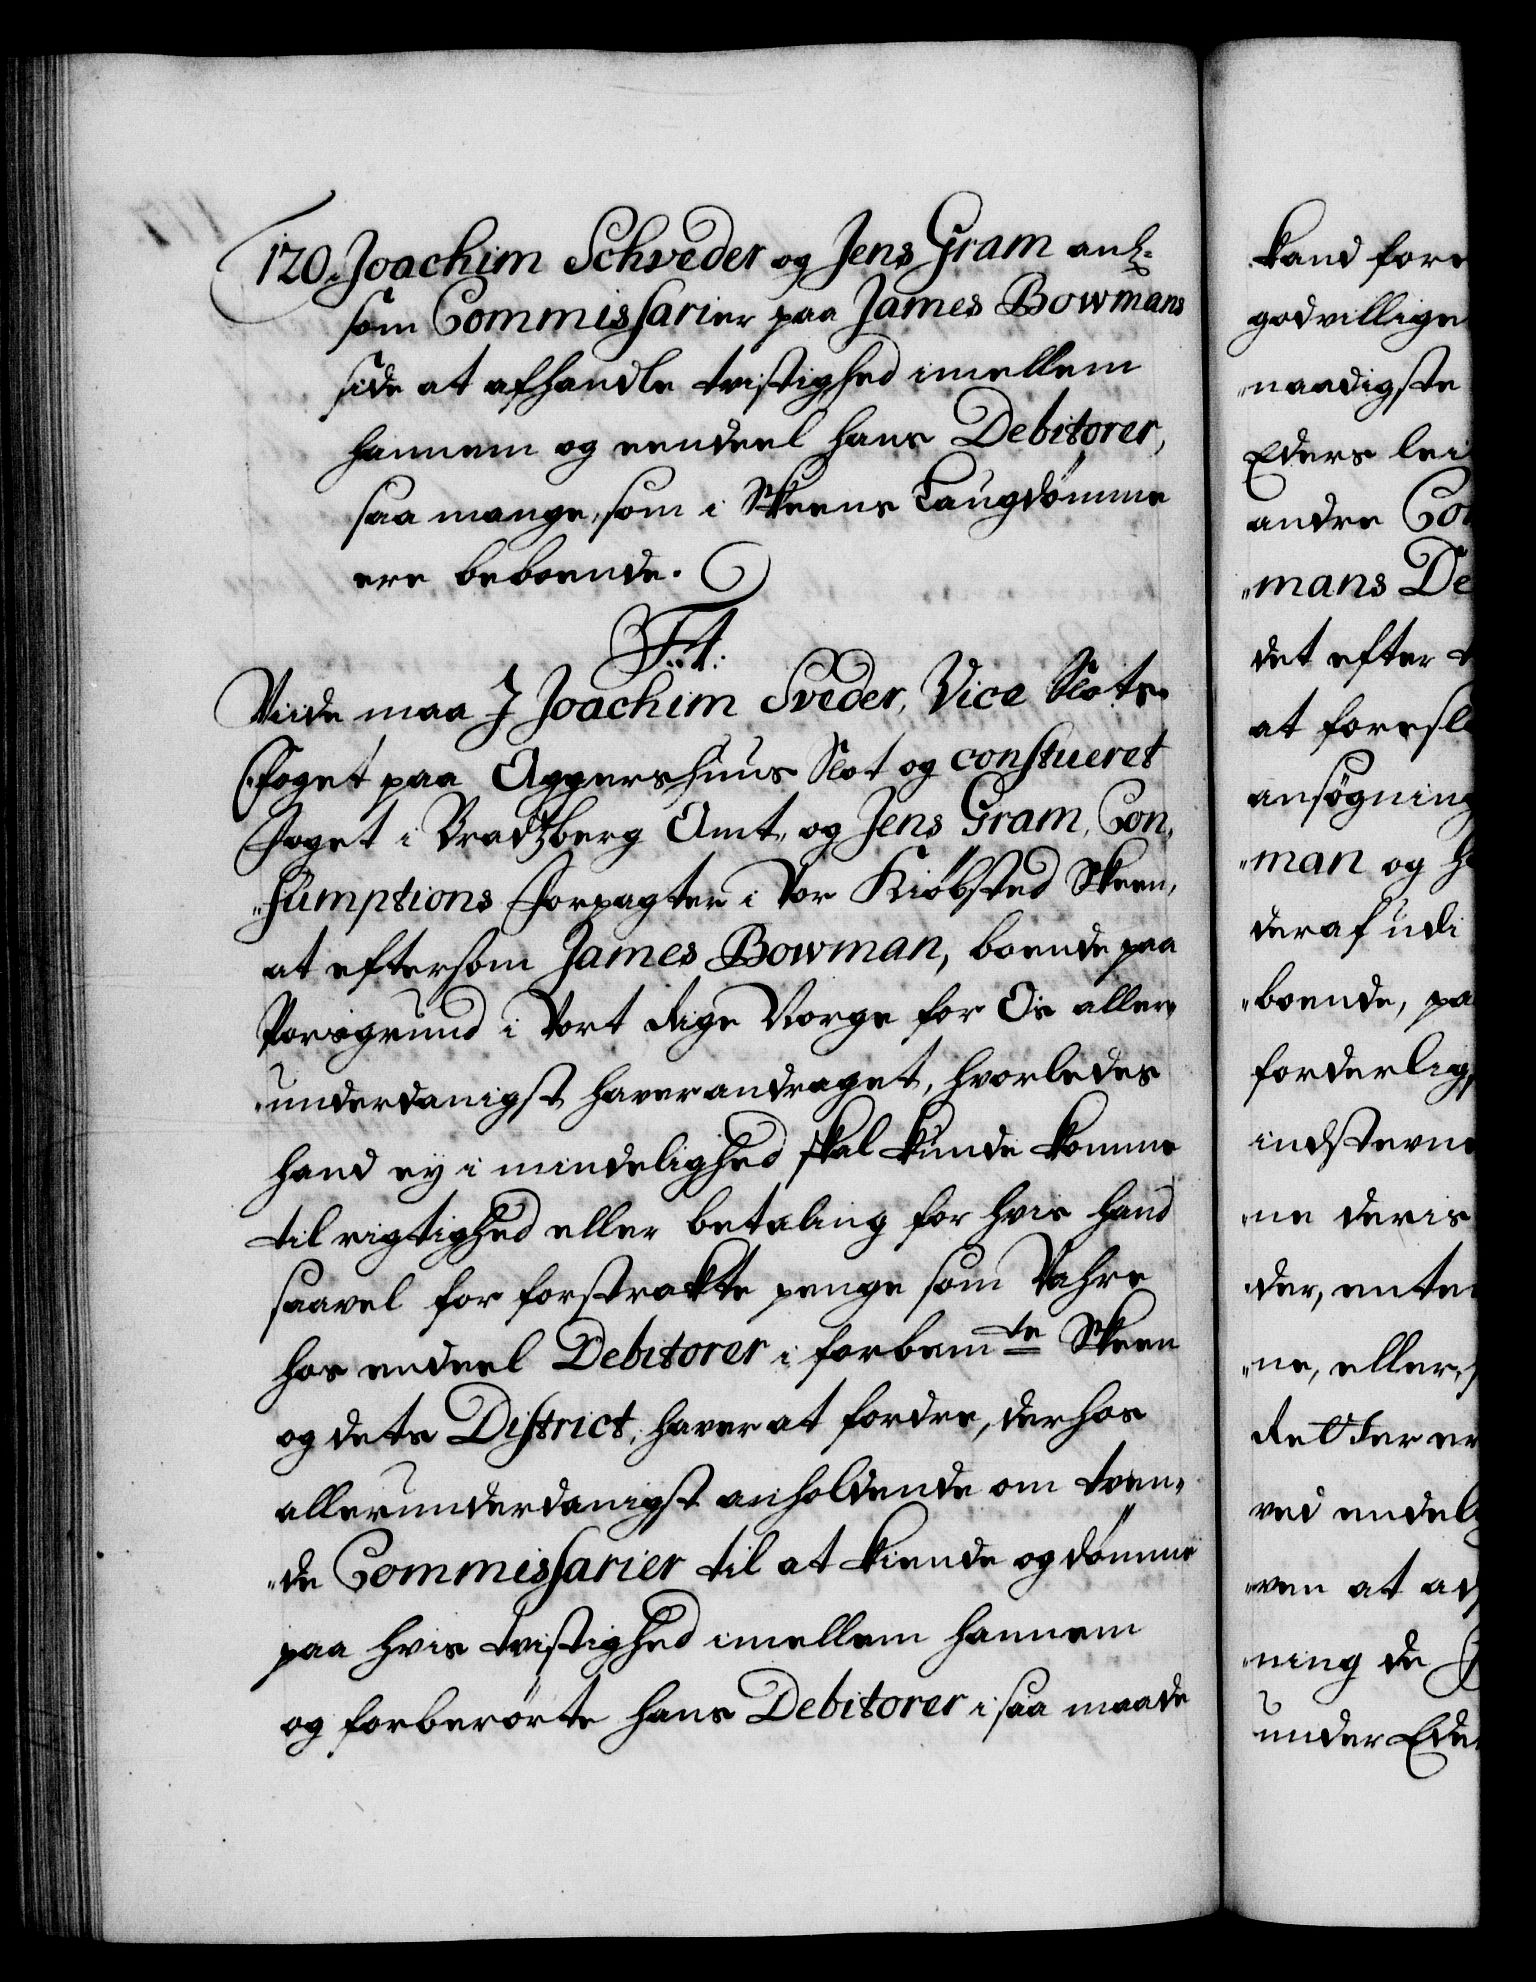 120. Joachim Schveder og Jens Gram anl:
som Commissarier paa James Bowmans
side at afhandle tvistighed imellem
hannem og eendeel hans Debitorer,
saa mange, som i Skeens Laugdömme
ere beboende.
F: 4.
Viide maa I Joachim Sveder, Vice Slots-
Foget paa Aggershuus Slot og constueret
Foget i Bradtzberg Amt, og Jens Gram, Con-
sumptions Forpagter i Vor Kiöbsted Skeen,
at eftersom James Bowman, boende paa
Porsgrund i Vort Rige Norge for Os aller-
underdanigst haver andraget, hvorledes
hand ey i mindelighed skal kunde komme
til rigtighed eller betaling for hvis hand
saavel for forstrakte penge som Vahre
hos endeel Debitorer i forbemte Skeen
og dets District, haver at fordre, derhos
allerunderdanigst anholdende om tven-
de Commissarier til at kiende og dömme
paa hvis tvistighed imellem hannem
og forberörte hans Debitorer i saa maade
kand fore
godvillige
naadigste
Eders lei
andre Co
mans De
det efter
at foresl
ansögning
man og h
deraf udi
boende, pa
forderlig
indstevne
ne deris
der, ente
ne, eller
de
ved endel
ven at ad
ning de
under Ede